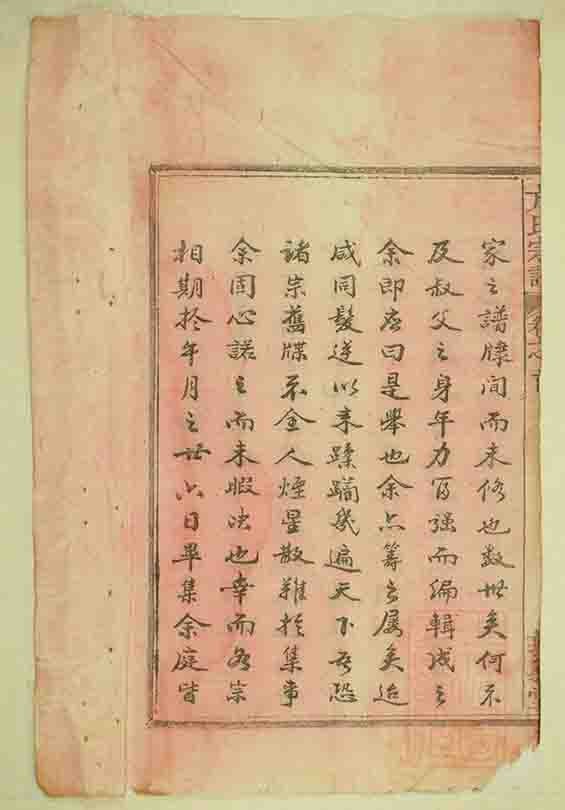 方氏宗譜 卷之首
家之譜牒间而未修也数世矣何不
及叔父之身年力富强而编輯成之
余即應曰是舉也余亦籌之屡矣迨
咸同髮逆以来蹂躪幾遍天下吾恐
諸宗舊牒不全人煙星散難於集事
余固心諾之而未暇决也幸而各宗
相期於年月之廿六日畢集余庭皆